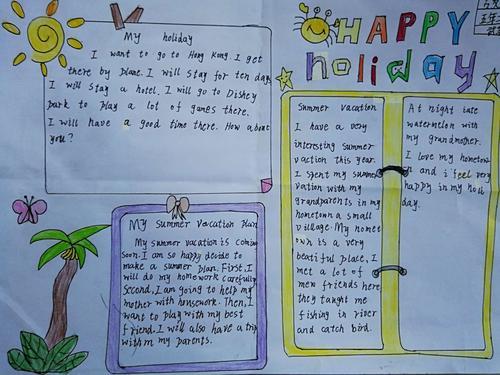 My holiday
I want to go to Hong Kong. I get
there by plane. I will stay for ten days
I will stay a hotel. I will go to Disney
park to play a lot of games there.
I will have a good time there. How about
you?
HAPPY
holiday
Summer vacation
I have a very
interesting summer
vaction this year.
I spent my summer
vation with my
grandparents in my
hometown a small
village. My homet
own is a very
beatiful place, I
met a lot of
new friends here
they taught me
fishing in river
and catch bird.
At night I ate
watermelon with
my grandmother.
I love my hometow
n and i feel very
happy in my holi
day.
MY Summer Vacation Plan
My summer vacation is coming
soon. I am so happy decide to
make a summer plan. First, I
will do my homework carefully
Second, I am going to help my
mother with housework. Then, I
want to play with my best
friend. I will also have a trip
with m my parents.